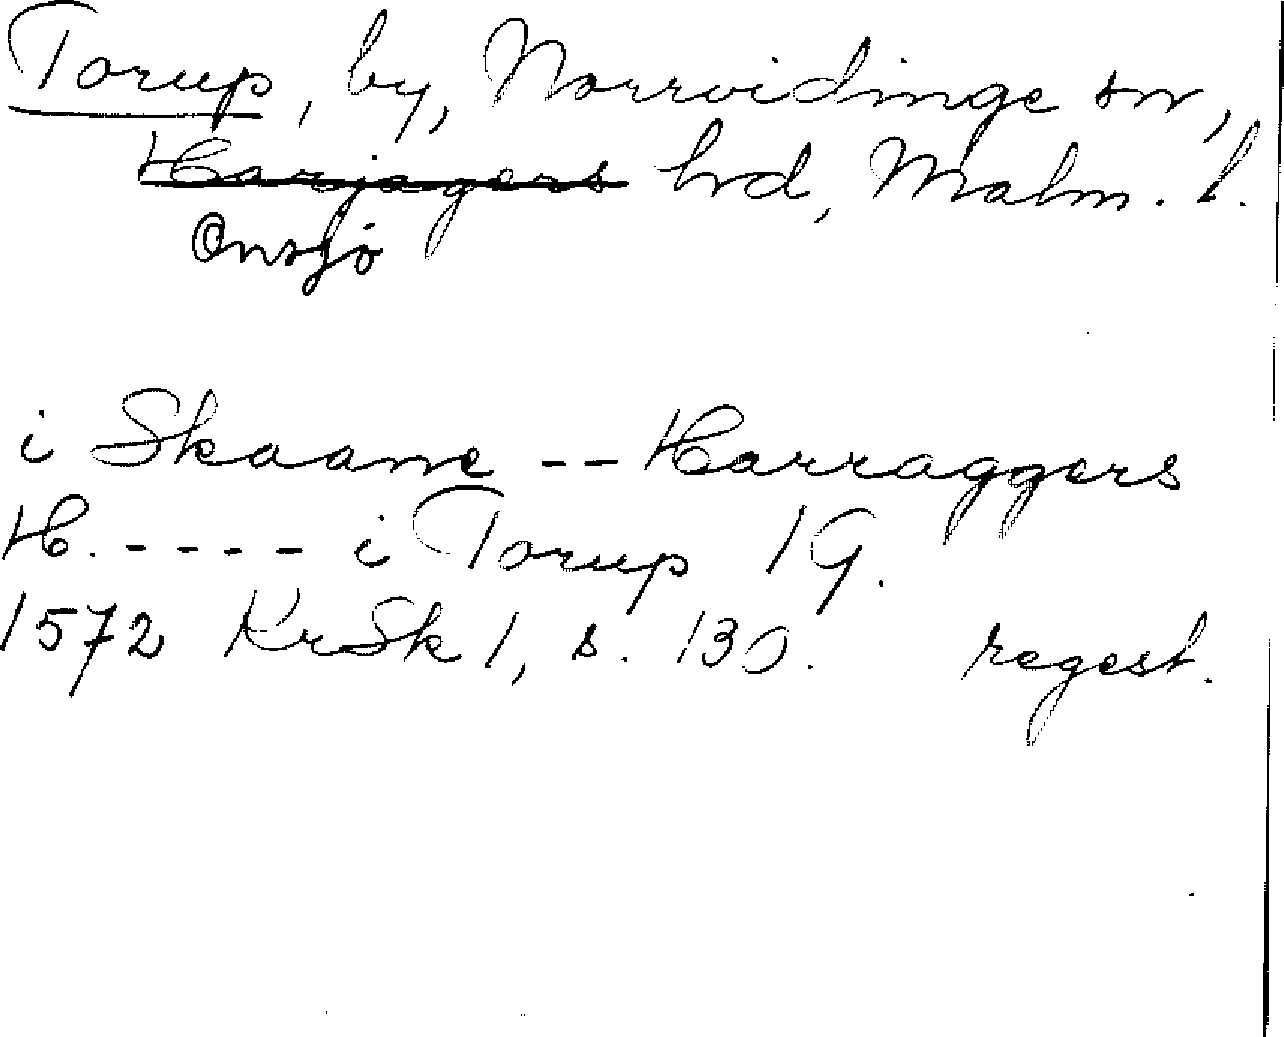 Torup, by, Norrvidinge sn,
Harjagers hrd, Malm. l.
Onsjö
i Skaane -- Harraggers
H. ---- i Torup 1 G.
1572 KrSk 1, s. 130. regest.